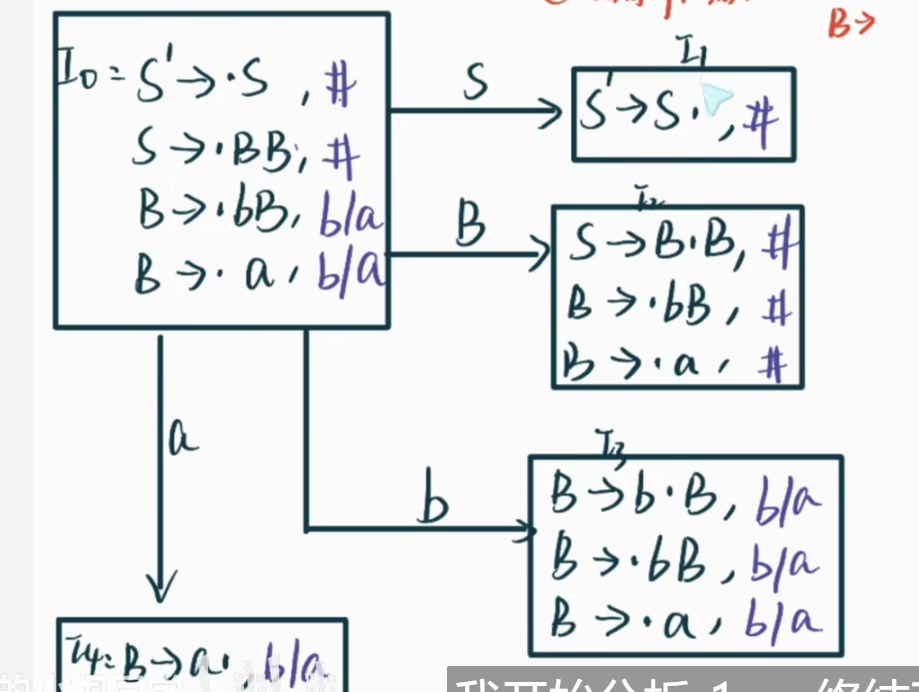 B→
I0 = S'→·S , #
S→·BB, #
B→·bB, b/a
B→·a, b/a
S
I1
S'→S· , #
B
I2
S→B·B, #
B→·bB, #
B→·a, #
a
b
I3
B→b·B, b/a
B→·bB, b/a
B→·a, b/a
I4: B→a·, b/a
我开始分析